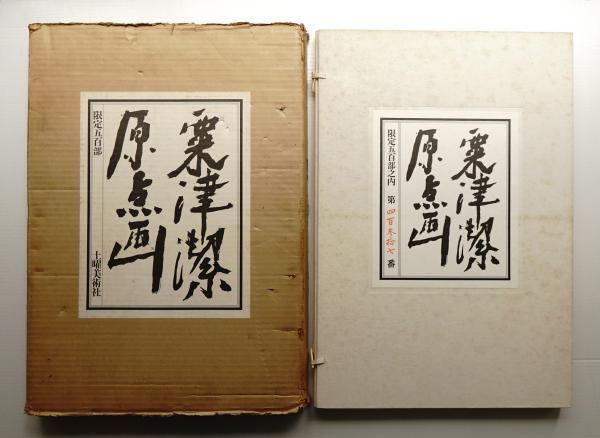 粟津潔
原点画
限定五百部
土曜美術社
粟津潔
原点画
限定五百部之内 第四百参拾七番